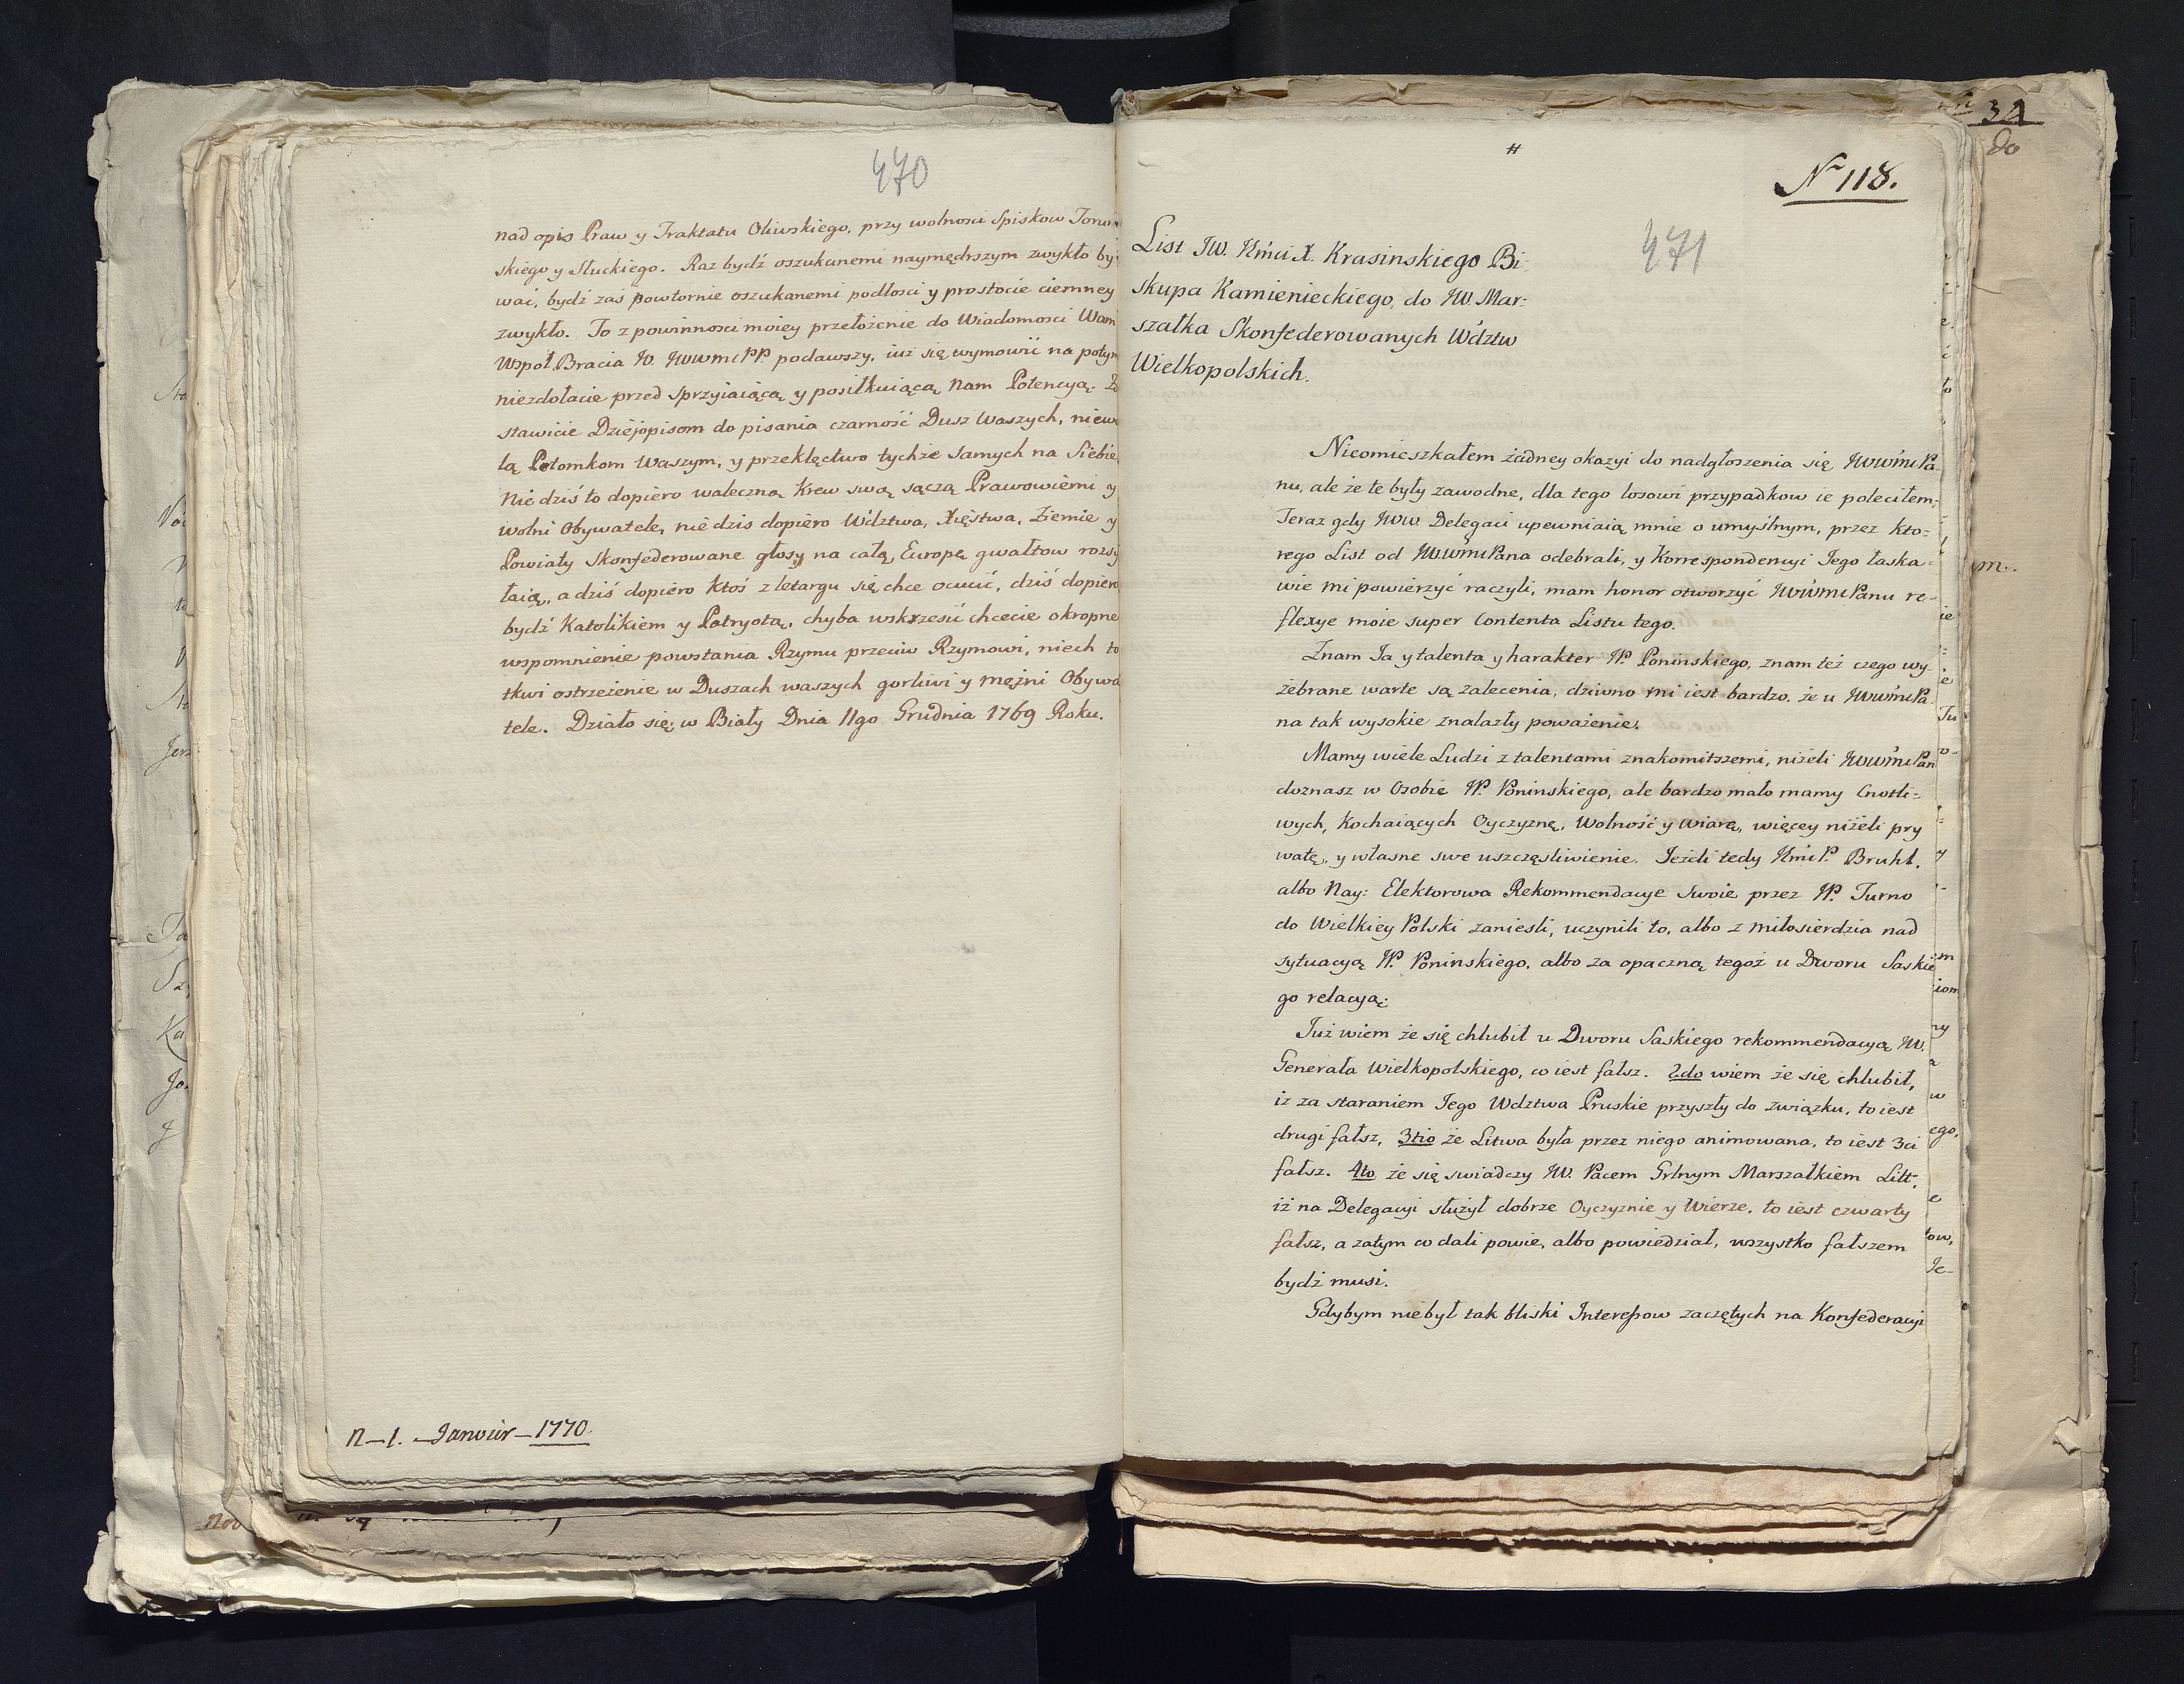 470
nad opis Praw y Traktatu Oliwskiego, przy wolnosci Spiskow Toruń
skiego y Słuckiego. Raz bydź oszukanemi naymędrszym zwykło by
wać, bydź zaś powtornie oszukanemi podłosci y prostocie ciemney
zwykło. To z powinnosci moiey przełożenie do Wiadomosci Wam
Wspoł Bracia podawszy, iuż się wymowić na potym
niezdołacie przed sprzyiaiącą y posiłkuiącą nam Potencyą. Zo
stawicie Dziejopisom do pisania czarność Dusz Waszych, niewo
lą Potomkom Waszym, y przeklęctwo tychże samych na Siebie.
Nie dziś to dopiero waleczną Krew swą sączą Prawowierni y
wolni Obywatele, nie dzis dopiero Wdztwa, Xięstwa, Ziemie y
Powiaty Skonfederowane głosy na całą Europę gwałtow rozsy
łaią, a dziś dopiero Ktoś z letargu się chce ocucić, dziś dopiero
bydź Katolikiem y Patryotą, chyba wskrzesić chcecie okropne
wspomnienie powstania Rzymu przeciw Rzymowi, niech to
tkwi ostrzeżenie w Duszach waszych gorliwi y mężni Obywa
tele. Działo się w Biały Dnia 11go Grudnia 1769 Roku.
n-1. Janvier-1770.
#
N 118.
471
List JW. Jmci X. Krasinskiego Bi-
skupa Kamienieckiego, do JW. Mar:
szałka Skonfederowanych Wdztw
Wielkopolskich.
Nieomieszkałem żadney okazyi do nadgłoszenia się JWWmci Pa
nu, ale że te były zawodne, dla tego losowi przypadkow ie poleciłem;
Teraz gdy JWW. Delegaci upewniaią mnie o umyślnym, przez kto=
rego List od JWWmci Pana odebrali, y Korrespondencyi Jego łaska=
wie mi powierzyć raczyli, mam honor otworzyć JWWmci Panu re-
flexye moie super Contenta Listu tego.
Znam Ja y talenta y harakter JP. Poninskiego, znam też czego wy
żebrane warte są zalecenia, dziwno mi iest bardzo, że u JWWmci Pa
na tak wysokie znalazły poważenie.
Mamy wiele Ludzi z talentami znakomitszemi, niżeli JWWmci Pan
doznasz w Osobie JP. Poninskiego, ale bardzo mało mamy Cnotli=
wych, Kochaiących Oyczyznę, Wolność y wiarę, więcey niżeli pry
watę, y własne swe uszczęsliwienie. Jeżeli tedy Jmci P. Bruhl,
albo Nay: Elektorowa Rekommendacye swoie przez JP. Turno
do Wielkiey Polski zaniesli, uczynili to, albo z miłosierdzia nad
sytuacyą JP. Poninskiego, albo za opaczną tegoż u Dworu Saskie
go relacyą.
Już wiem że się chlubił u Dworu Saskiego rekommendacyą JW.
Generała Wielkopolskiego, co iest fałsz. 2do wiem że się chlubił,
iż za staraniem Jego Wdztwa Pruskie przyszły do związku, to iest
drugi fałsz, 3tio że Litwa była przez niego animowana, to iest 3ci
fałsz. 4to że się swiadczy JW. Pacem Grlnym Marszałkiem Litt,
iż na Delegacyi służył dobrze Oyczyznie y Wierze, to iest czwarty
fałsz, a zatym co dali powie, albo powiedział, wszystko fałszem
bydź musi.
Gdybym niebył tak bliski Interessow zaczętych na Konfederacyi